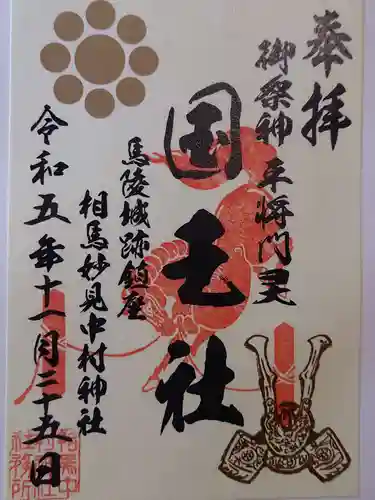 奉拝
御祭神 平将門
国王社
馬陵城跡鎮座
相馬妙見中村神社
令和五年十一月二十五日